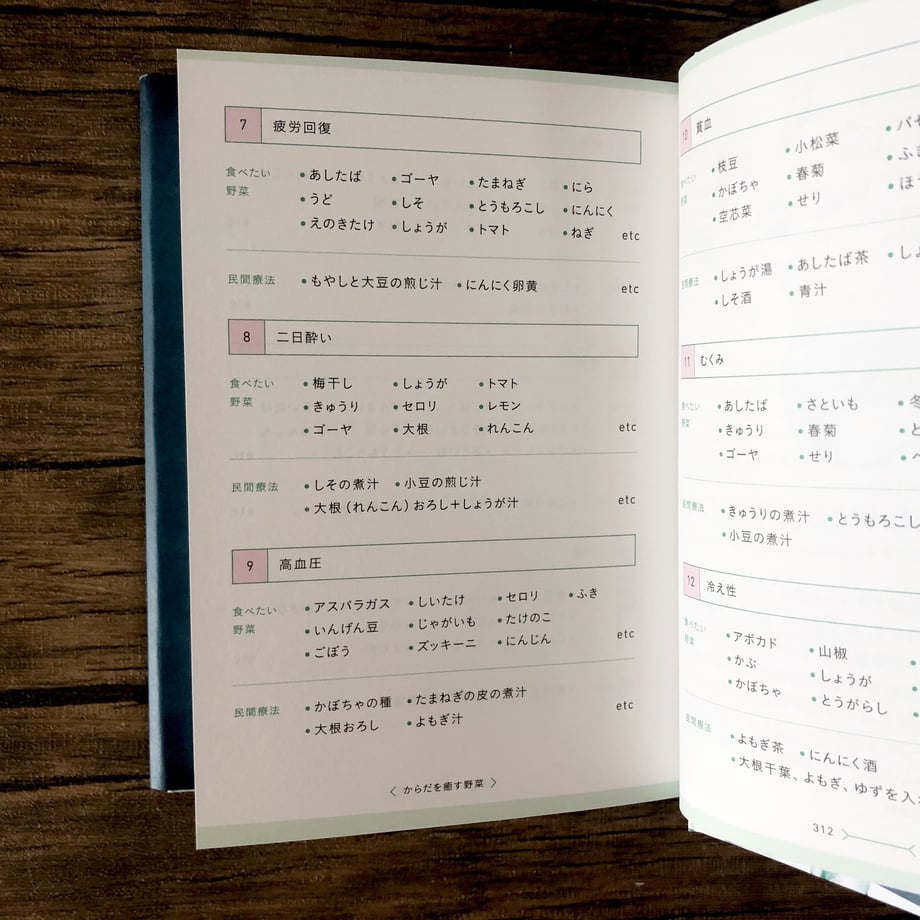 7 疲労回復
食べたい野菜
•あしたば •ゴーヤ •たまねぎ •にら
•うど •しそ •とうもろこし •にんにく
•えのきたけ •しょうが •トマト •ねぎ etc
民間療法 •もやしと大豆の煎じ汁 •にんにく卵黄 etc
8 二日酔い
食べたい野菜
•梅干し •しょうが •トマト
•きゅうり •セロリ •レモン
•ゴーヤ •大根 •れんこん etc
民間療法 •しその煮汁 •小豆の煎じ汁
•大根(れんこん)おろし+しょうが汁 etc
9 高血圧
食べたい野菜
•アスパラガス •しいたけ •セロリ •ふき
•いんげん豆 •じゃがいも •たけのこ
•ごぼう •ズッキーニ •にんじん etc
民間療法 •かぼちゃの種 •たまねぎの皮の煮汁
•大根おろし •よもぎ汁 etc
〈 からだを癒す野菜 〉
10 貧血
食べたい野菜
•枝豆 •小松菜
•かぼちゃ •春菊
•空芯菜 •せり
民間療法 •しょうが湯 •あしたば茶
•しそ酒 •青汁
11 むくみ
食べたい野菜
•あしたば •さといも
•きゅうり •春菊
•ゴーヤ •せり
民間療法 •きゅうりの煮汁 •とうもろこし
•小豆の煮汁
12 冷え性
食べたい野菜
•アボカド •山椒
•かぶ •しょうが
•かぼちゃ •とうがらし
民間療法 •よもぎ茶 •にんにく酒
•大根干葉、よもぎ、ゆずを入
312